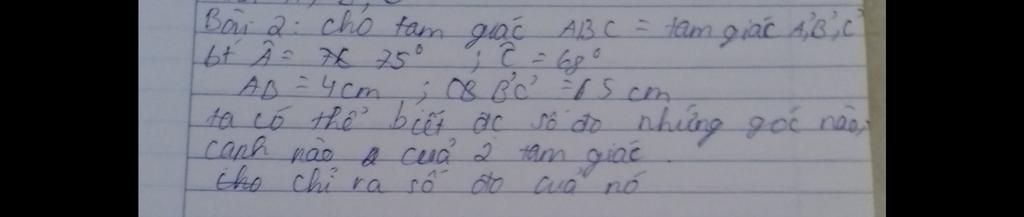 Bài 2: cho tam giác ABC = tam giác A'B'C'
bt Â = 75° ; Ĉ = 68°
AB = 4cm ; B'C' = 5 cm
ta có thể biết đc số đo những góc nào,
cạnh nào của 2 tam giác.
chỉ ra số đo của nó